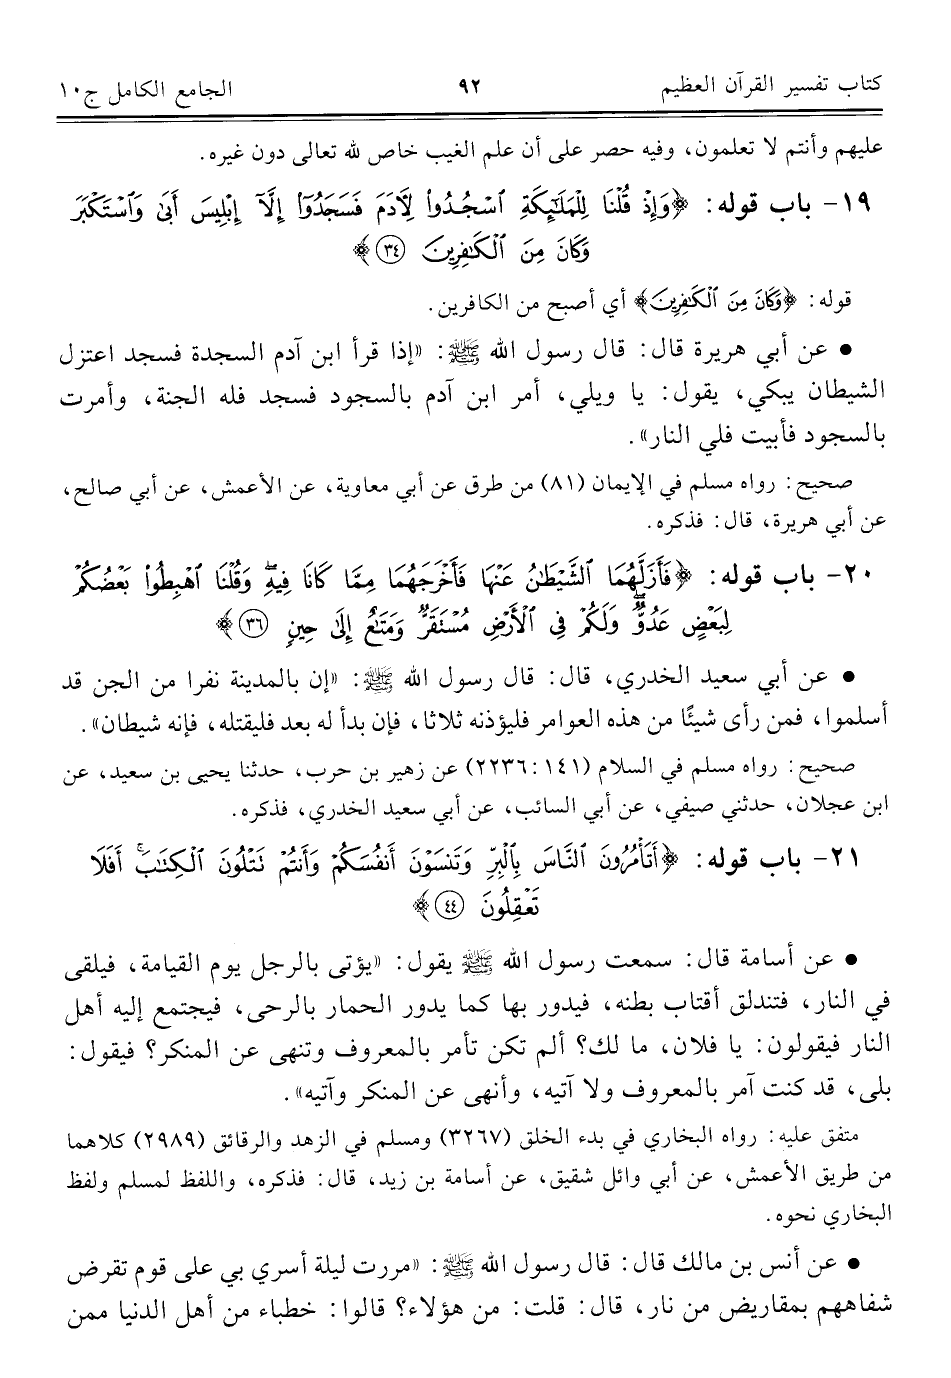 كتاب تفسير القرآن العظيم ٩٢ الجامع الكامل ج١٠
عليهم وأنتم لا تعلمون، وفيه حصر على أن علم الغيب خاص لله تعالى دون غيره.
١٩- باب قوله: ﴿وَإِذْ قُلْنَا لِلْمَلَٰٓئِكَةِ ٱسْجُدُوا۟ لِءَادَمَ فَسَجَدُوٓا۟ إِلَّآ إِبْلِيسَ أَبَىٰ وَٱسْتَكْبَرَ
وَكَانَ مِنَ ٱلْكَٰفِرِينَ ٣٤﴾
قوله: ﴿وَكَانَ مِنَ ٱلْكَٰفِرِينَ﴾ أي أصبح من الكافرين.
• عن أبي هريرة قال: قال رسول الله ﷺ: «إذا قرأ ابن آدم السجدة فسجد اعتزل
الشيطان يبكي، يقول: يا ويلي، أمر ابن آدم بالسجود فسجد فله الجنة، وأمرت
بالسجود فأبيت فلي النار».
صحيح: رواه مسلم في الإيمان (٨١) من طرق عن أبي معاوية، عن الأعمش، عن أبي صالح،
عن أبي هريرة، قال: فذكره.
٢٠- باب قوله: ﴿فَأَزَلَّهُمَا ٱلشَّيْطَٰنُ عَنْهَا فَأَخْرَجَهُمَا مِمَّا كَانَا فِيهِ ۖ وَقُلْنَا ٱهْبِطُوا۟ بَعْضُكُمْ
لِبَعْضٍ عَدُوٌّ ۖ وَلَكُمْ فِى ٱلْأَرْضِ مُسْتَقَرٌّ وَمَتَٰعٌ إِلَىٰ حِينٍ ٣٦﴾
• عن أبي سعيد الخدري، قال: قال رسول الله ﷺ: «إن بالمدينة نفرا من الجن قد
أسلموا، فمن رأى شيئًا من هذه العوامر فليؤذنه ثلاثا، فإن بدأ له بعد فليقتله، فإنه شيطان».
صحيح: رواه مسلم في السلام (١٤١:٢٢٣٦) عن زهير بن حرب، حدثنا يحيى بن سعيد، عن
ابن عجلان، حدثني صيفي، عن أبي السائب، عن أبي سعيد الخدري، فذكره.
٢١- باب قوله: ﴿أَتَأْمُرُونَ ٱلنَّاسَ بِٱلْبِرِّ وَتَنسَوْنَ أَنفُسَكُمْ وَأَنتُمْ تَتْلُونَ ٱلْكِتَٰبَ ۚ أَفَلَا
تَعْقِلُونَ ٤٤﴾
• عن أسامة قال: سمعت رسول الله ﷺ يقول: «يؤتى بالرجل يوم القيامة، فيلقى
في النار، فتندلق أقتاب بطنه، فيدور بها كما يدور الحمار بالرحى، فيجتمع إليه أهل
النار فيقولون: يا فلان، ما لك؟ ألم تكن تأمر بالمعروف وتنهى عن المنكر؟ فيقول:
بلى، قد كنت آمر بالمعروف ولا آتيه، وأنهى عن المنكر وآتيه».
متفق عليه: رواه البخاري في بدء الخلق (٣٢٦٧) ومسلم في الزهد والرقائق (٢٩٨٩) كلاهما
من طريق الأعمش، عن أبي وائل شقيق، عن أسامة بن زيد، قال: فذكره، واللفظ لمسلم ولفظ
البخاري نحوه.
• عن أنس بن مالك قال: قال رسول الله ﷺ: «مررت ليلة أسري بي على قوم تقرض
شفاههم بمقاريض من نار، قال: قلت: من هؤلاء؟ قالوا: خطباء من أهل الدنيا ممن